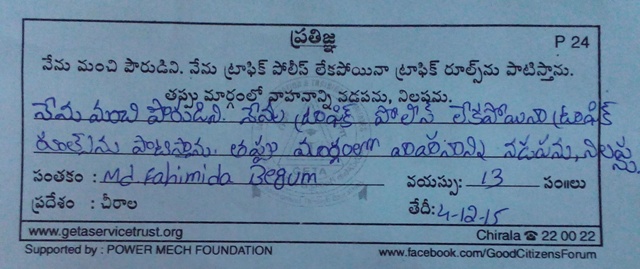 ప్రతిజ్ఞ
P 24
నేను మంచి పౌరుడిని. నేను ట్రాఫిక్ పోలీస్ లేకపోయినా ట్రాఫిక్ రూల్స్‌ను పాటిస్తాను.
తప్పు మార్గంలో వాహనాన్ని నడపను, నిలపను.
నేను మంచి పౌరుడిని. నేను ట్రాఫిక్ పోలీస్ లేకపోయినా ట్రాఫిక్
రూల్స్‌ను పాటిస్తాను. తప్పు మార్గంలో వాహనాన్ని నడపను, నిలపను
సంతకం : Md Fahimida Begum వయస్సు: 13 సం॥లు
ప్రదేశం : చీరాల తేదీ: 4-12-15
www.getaservicetrust.org Chirala ☎ 22 00 22
Supported by : POWER MECH FOUNDATION www.facebook.com/GoodCitizensForum